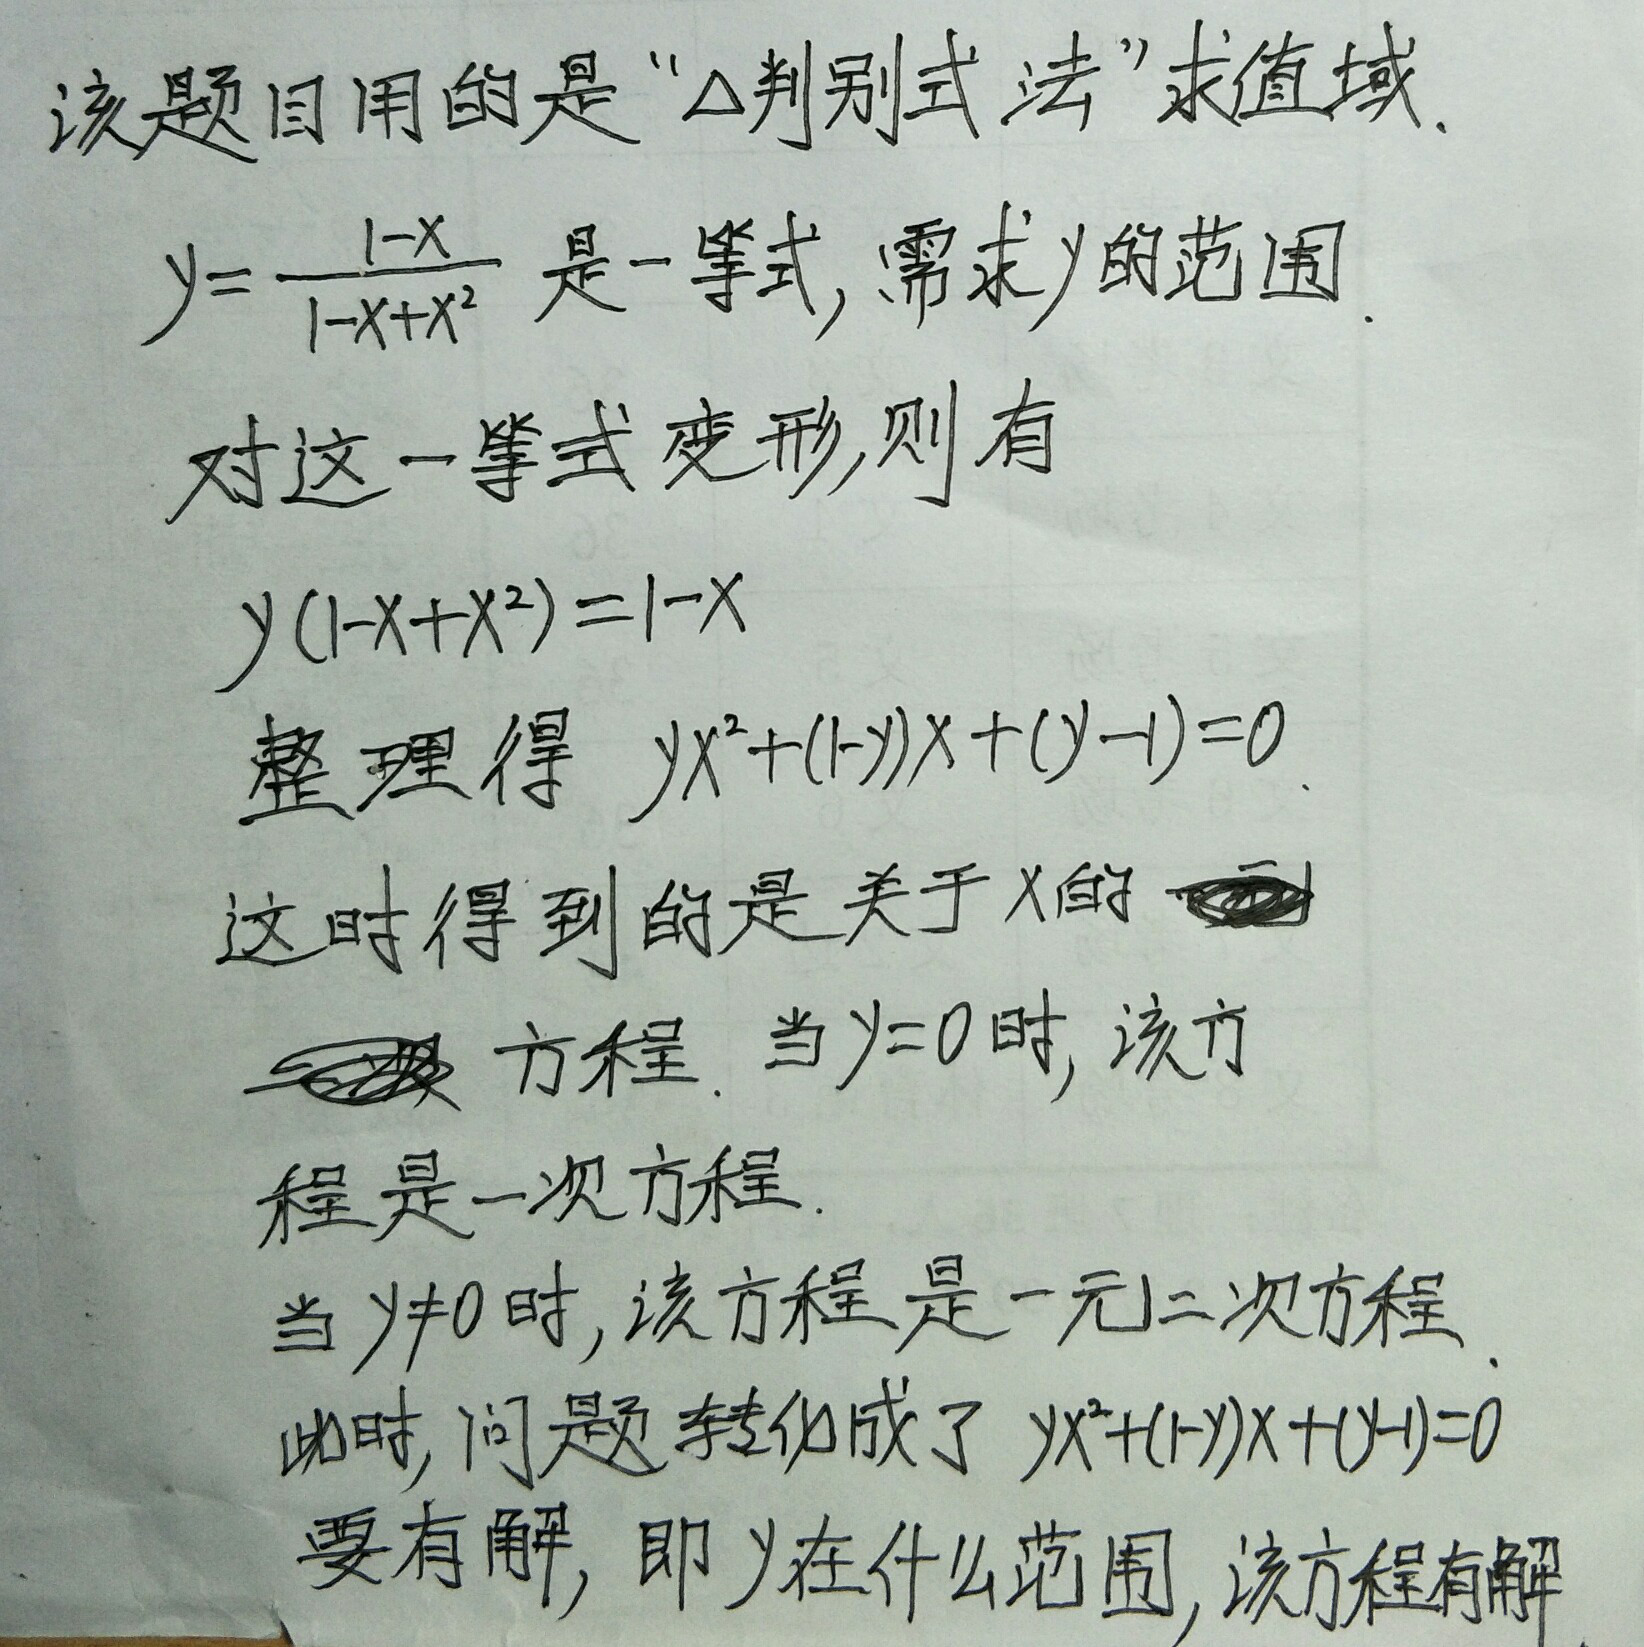 该题目用的是“△判别式法”求值域.
y=\frac{1-x}{1-x+x²} 是一等式,需求y的范围.
对这一等式变形,则有
y(1-x+x²)=1-x
整理得 yx²+(1-y)x+(y-1)=0.
这时得到的是关于x的
方程.当y=0时,该方
程是一次方程.
当y≠0时,该方程是一元二次方程.
此时,问题转化成了 yx²+(1-y)x+(y-1)=0
要有解,即y在什么范围,该方程有解.